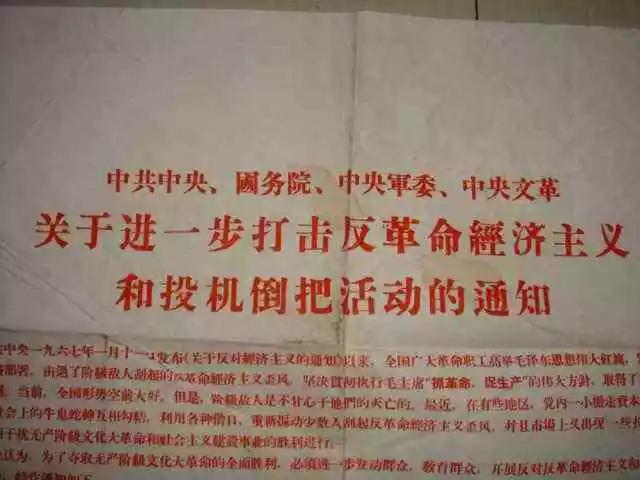 中共中央、國务院、中央軍委、中央文革
关于进一步打击反革命經济主义
和投机倒把活动的通知
中央一九六七年一月十一日发布《关于反对經济主义的通知》以来，全国广大革命职工高举毛泽东思想伟大紅旗，
部署，击退了阶級敌人刮起的反革命經济主义歪风，坚决貫彻执行毛主席“抓革命，促生产”的伟大方針，取得了
当前，全国形势空前大好。但是，阶級敌人是不甘心于他們的灭亡的。最近，在有些地区，党内一小撮走資本
会上的牛鬼蛇神互相勾結，利用各种借口，重新煽动少数人刮起反革命經济主义歪风，对且市場上又出現一些
干扰无产阶級文化大革命和社会主义建設事业的胜利进行。
认为，为了夺取无产阶級文化大革命的全面胜利，必須进一步发动群众，教育群众，开展反对反革命經济主义和
特作通知如下